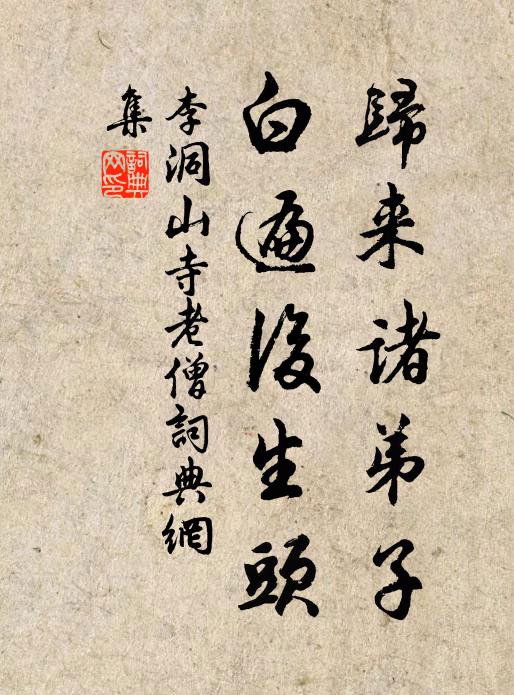 歸来諸弟子
白遍後生頭
李洞山寺老僧詞典網
集
詞典
网印